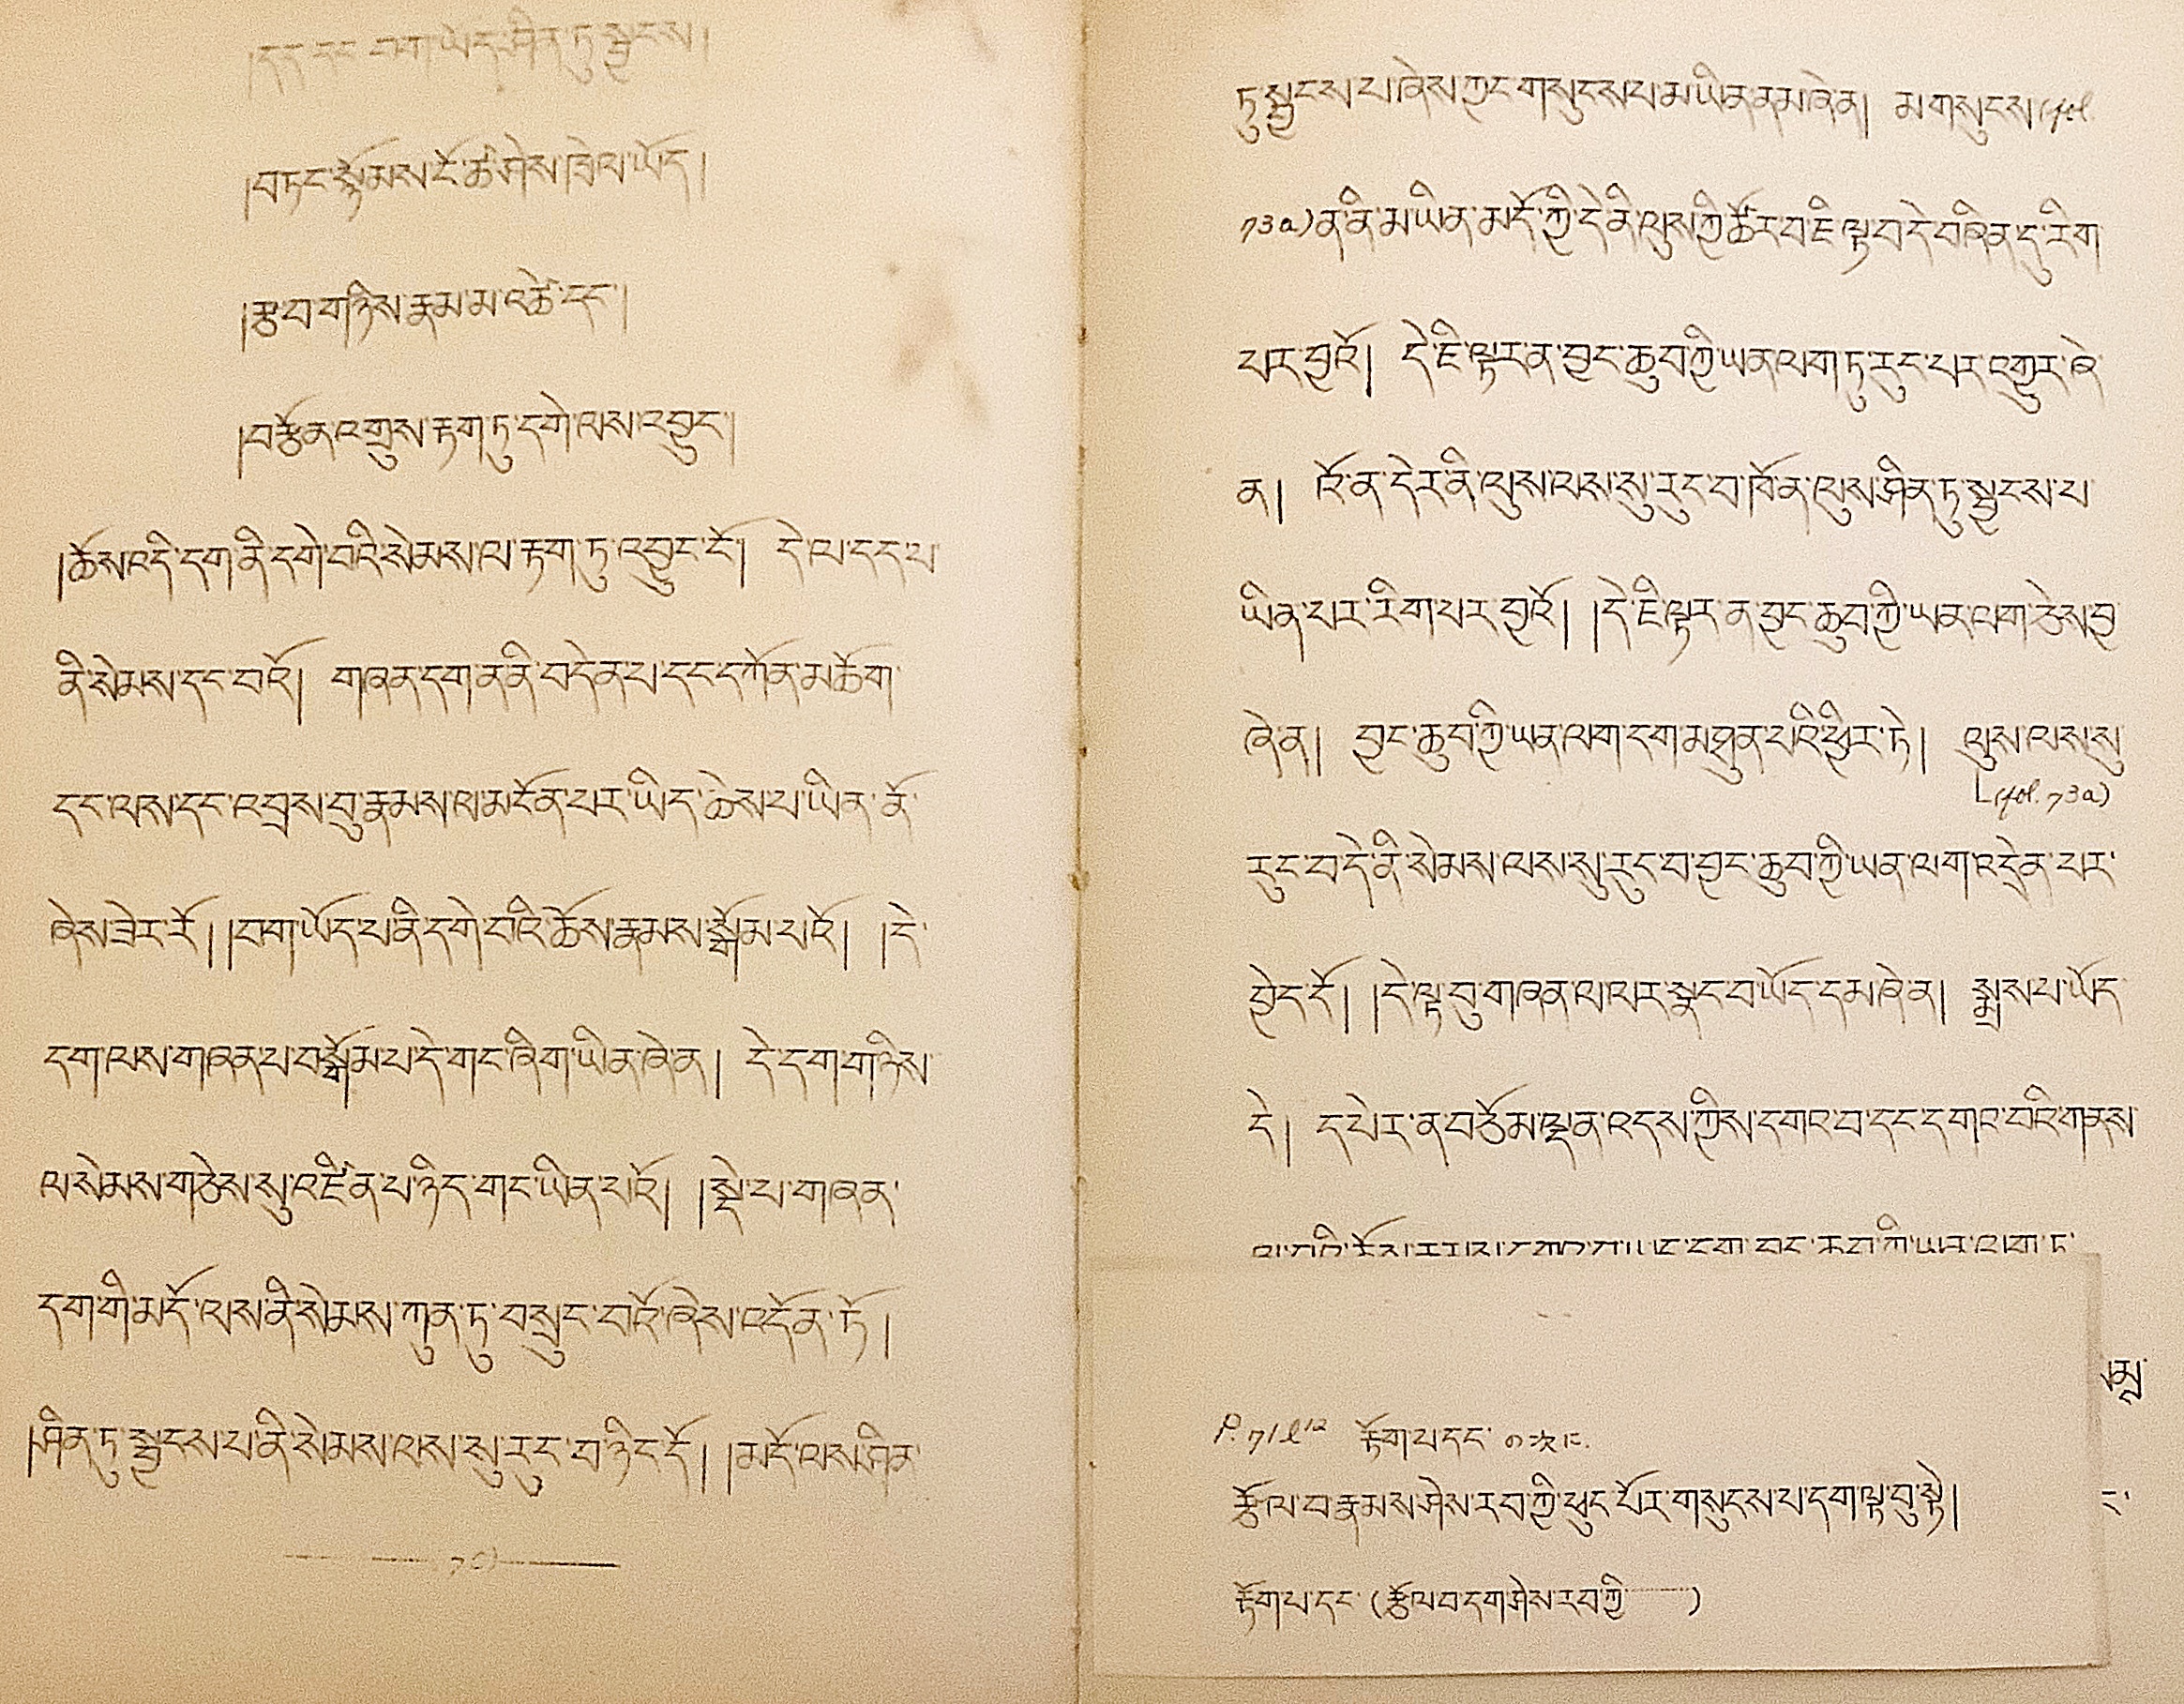 །དད་དང་བག་ཡོད་ཤིན་ཏུ་སྦྱངས།
།བཏང་སྙོམས་ངོ་ཚ་ཤེས་ཁྲེལ་ཡོད།
།རྩ་བ་གཉིས་རྣམ་མ་འཚེ་དང་།
།བརྩོན་འགྲུས་རྟག་ཏུ་དགེ་ལས་འབྱུང་།
།ཆོས་འདི་དག་ནི་དགེ་བའི་སེམས་ལ་རྟག་ཏུ་འབྱུང་ངོ། དེ་ལ་དད་པ་
ནི་སེམས་དང་བའོ། གཞན་དག་ན་ནི་བདེན་པ་དང་དཀོན་མཆོག་
དང་ལས་དང་འབྲས་བུ་རྣམས་ལ་མངོན་པར་ཡིད་ཆེས་པ་ཡིན་ནོ་
ཞེས་ཟེར་རོ། །བག་ཡོད་པ་ནི་དགེ་བའི་ཆོས་རྣམས་སྒོམ་པའོ། །དེ་
དག་ལས་གཞན་པ་བསྒོམ་པ་དེ་གང་ཞིག་ཡིན་ཞེ་ན། དེ་དག་གཉིས་
ལ་སེམས་གཅེས་སུ་འཛིན་པ་ཉིད་གང་ཡིན་པའོ། །སྡེ་པ་གཞན་
དག་གི་མདོ་ལས་ནི་སེམས་ཀུན་ཏུ་བསྲུང་བའོ་ཞེས་འདོན་ཏོ།
།ཤིན་ཏུ་སྦྱངས་པ་ནི་སེམས་ལས་སུ་རུང་བ་ཉིད་དོ། །མདོ་ལས་ཤིན་
ཏུ་སྦྱངས་པ་ཞེས་ཀྱང་གསུངས་པ་མ་ཡིན་ནམ་ཞེ་ན། མ་གསུངས་(fol.
73a)ན་ནི་མ་ཡིན་མདོ་ཀྱི་དེ་ནི་ལུས་ཀྱི་ཚོར་བ་ཇི་ལྟ་བ་དེ་བཞིན་དུ་རིག་
པར་བྱའོ། དེ་ཇི་ལྟར་ན་བྱང་ཆུབ་ཀྱི་ཡན་ལག་ཏུ་རུང་པར་འགྱུར་ཞེ་
ན། འོ་ན་དེར་ནི་ལུས་ལས་སུ་རུང་བ་ཁོ་ན་ལུས་ཤིན་ཏུ་སྦྱངས་པ་
ཡིན་པར་རིག་པར་བྱའོ། །དེ་ཇི་ལྟར་ན་བྱང་ཆུབ་ཀྱི་ཡན་ལག་ཅེས་བྱ་
ཞེ་ན། བྱང་ཆུབ་ཀྱི་ཡན་ལག་དག་མཐུན་པའི་ཕྱིར་ཏེ། ལུས་ལས་སུ་
(fol. 73a)
རུང་བ་དེ་ནི་སེམས་ལས་སུ་རུང་བ་བྱང་ཆུབ་ཀྱི་ཡན་ལག་འདྲེན་པར་
བྱེད་དོ། །དེ་ལྟ་བུ་གཞན་ལ་ལར་སྣང་བ་ཡོད་དམ་ཞེ་ན། སྨྲས་པ་ཡོད་
དེ། དཔེར་ན་བཅོམ་ལྡན་འདས་ཀྱིས་དགའ་བ་དང་དགའ་བའི་གནས་
P. 71 l 12 རྟོག་པ་དང་ の次に.
རྩོལ་བ་རྣམས་ཤེས་རབ་ཀྱི་ཕུང་པོར་གསུངས་པ་དག་ལྟ་བུ་སྟེ།
རྟོག་པ་དང་ (རྩོལ་བ་དག་ཤེས་རབ་ཀྱི་ ……)